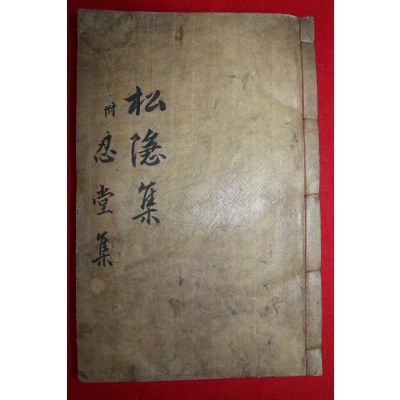 松隱集
附忍堂集